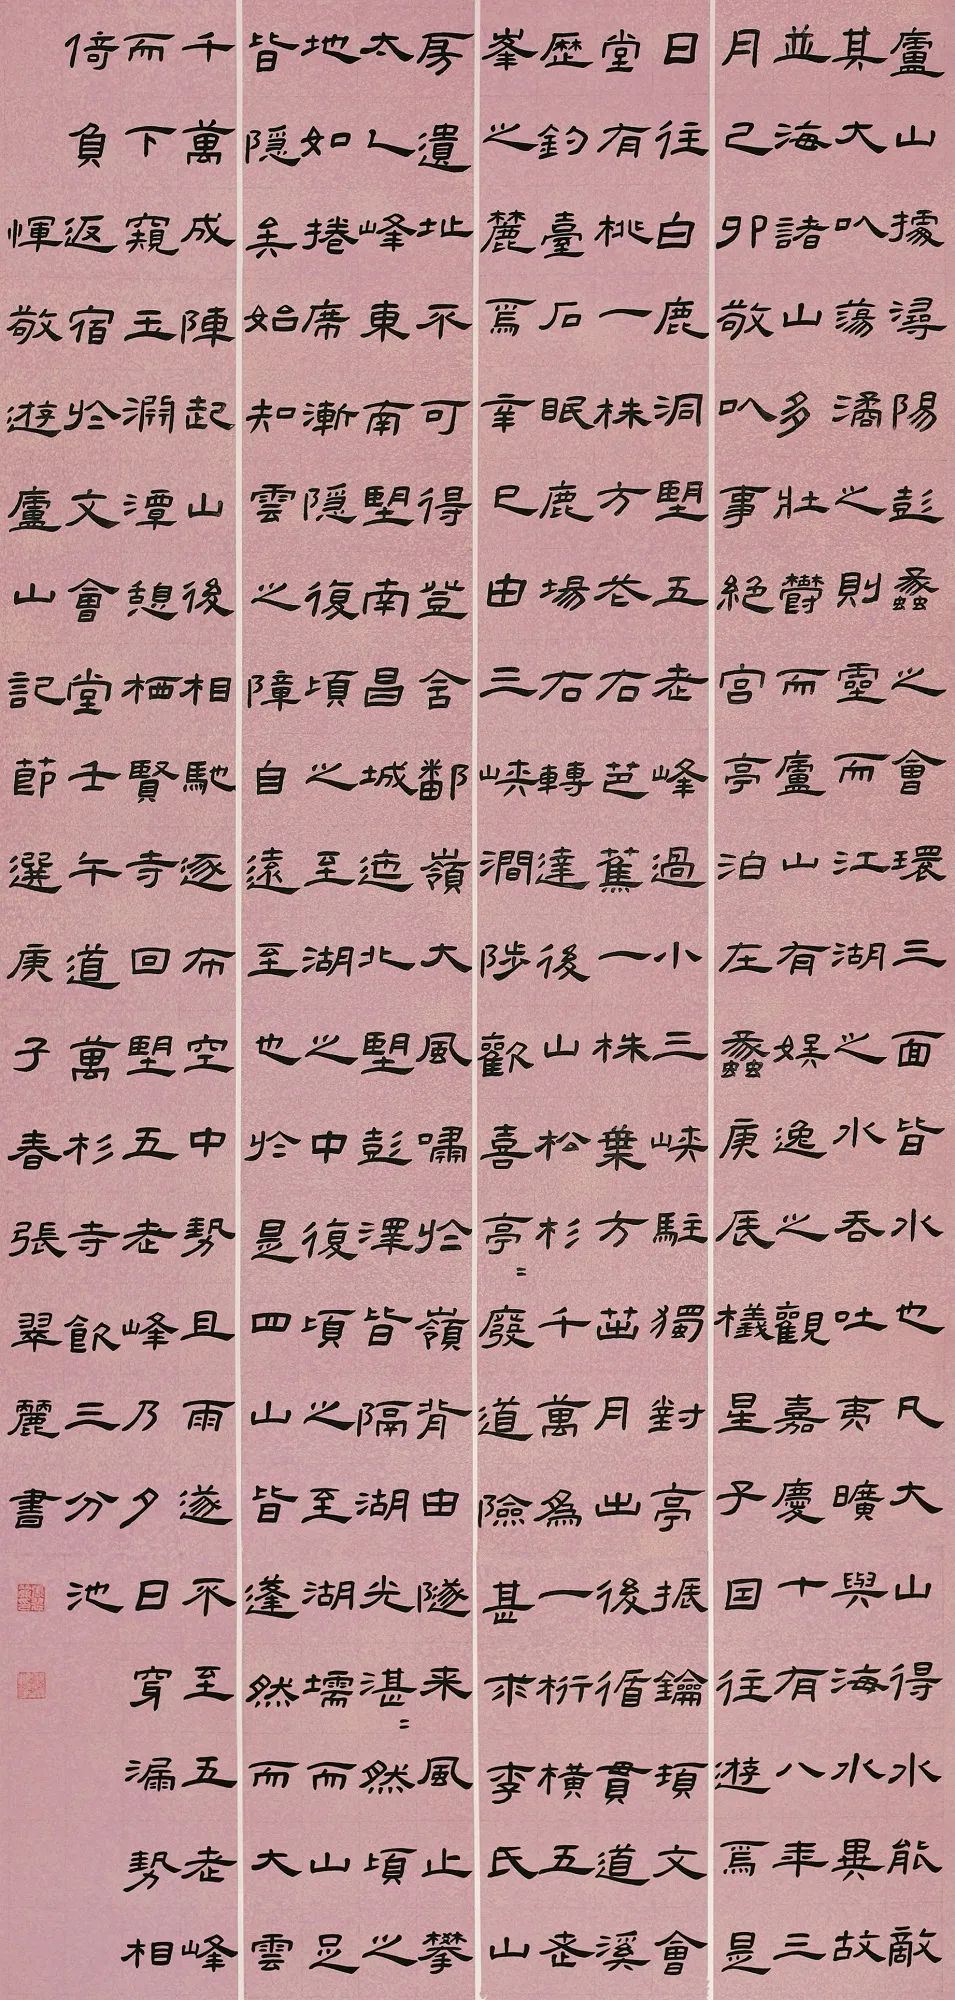 廬山據潯陽彭蠡之會環三面皆水也凡大山得水能敵
其大以蕩潏之則靈而江湖之水吞吐夷曠與海水異故
並海諸山多壯鬱而廬山有娛逸之觀嘉慶十有八年三
月己卯敬以事絕宮亭泊左蠡庚辰檥星子因往遊焉是
日往白鹿洞望五老峰過小三峽駐獨對亭振鑰頊文會
堂有桃一株方花右芭蕉一株葉方茁月出後循貫道溪
歷釣臺石眠鹿場右轉達後山松杉千萬為一桁橫五老
峯之麓焉辛巳由三峽澗陟歡喜亭=廢道險甚求李氏山
房遺址不可得登含鄱嶺大風嘯於嶺背由隧来風止攀
太乙峰東南望南昌城迤北望彭澤皆隔湖光湛=然頃之
地如捲席漸隱復頃之至湖之中復頃之至湖壖而山足
皆隱矣始知雲之障自遠至也於是四山皆蓬然而大雲
千萬成陣起山後相馳逐布空中勢且雨遂不至五老峰
而下窺玉淵潭憩栖賢寺回望五老峰乃夕日穿漏勢相
倚負返宿於文會堂壬午道萬杉寺飲三分池
惲敬遊廬山記節選庚子春張翠麗書